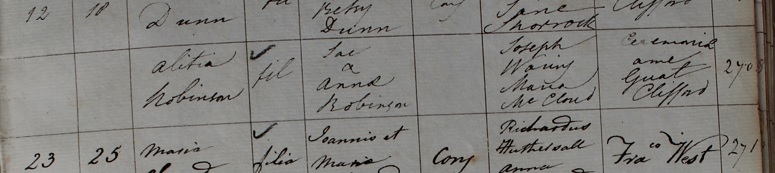 12 18 Dunn fil Betsy Dunn Conj Jane Shorrock Clifford
Alitia Robinson fil Jac a Anna Robinson Joseph Waring Maria McCloud Ceremonia a me Gual Clifford 270
23 25 Maria filia Joannis et Maria Conj Richardus Hothersall Anna Fra co West 271